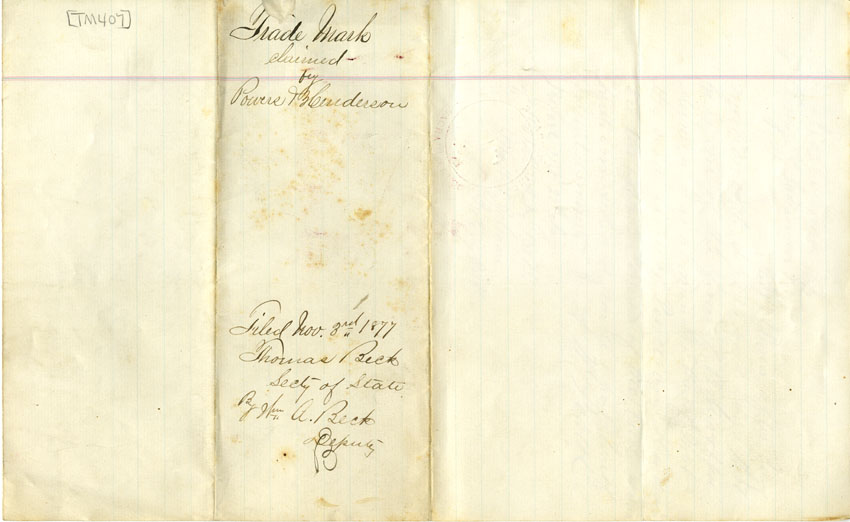 [TM407]
Trade Mark
claimed
by
Powers & Henderson
Filed Nov. 3rd 1877
Thomas Beck
Secty of State
By Wm A. Beck
Deputy